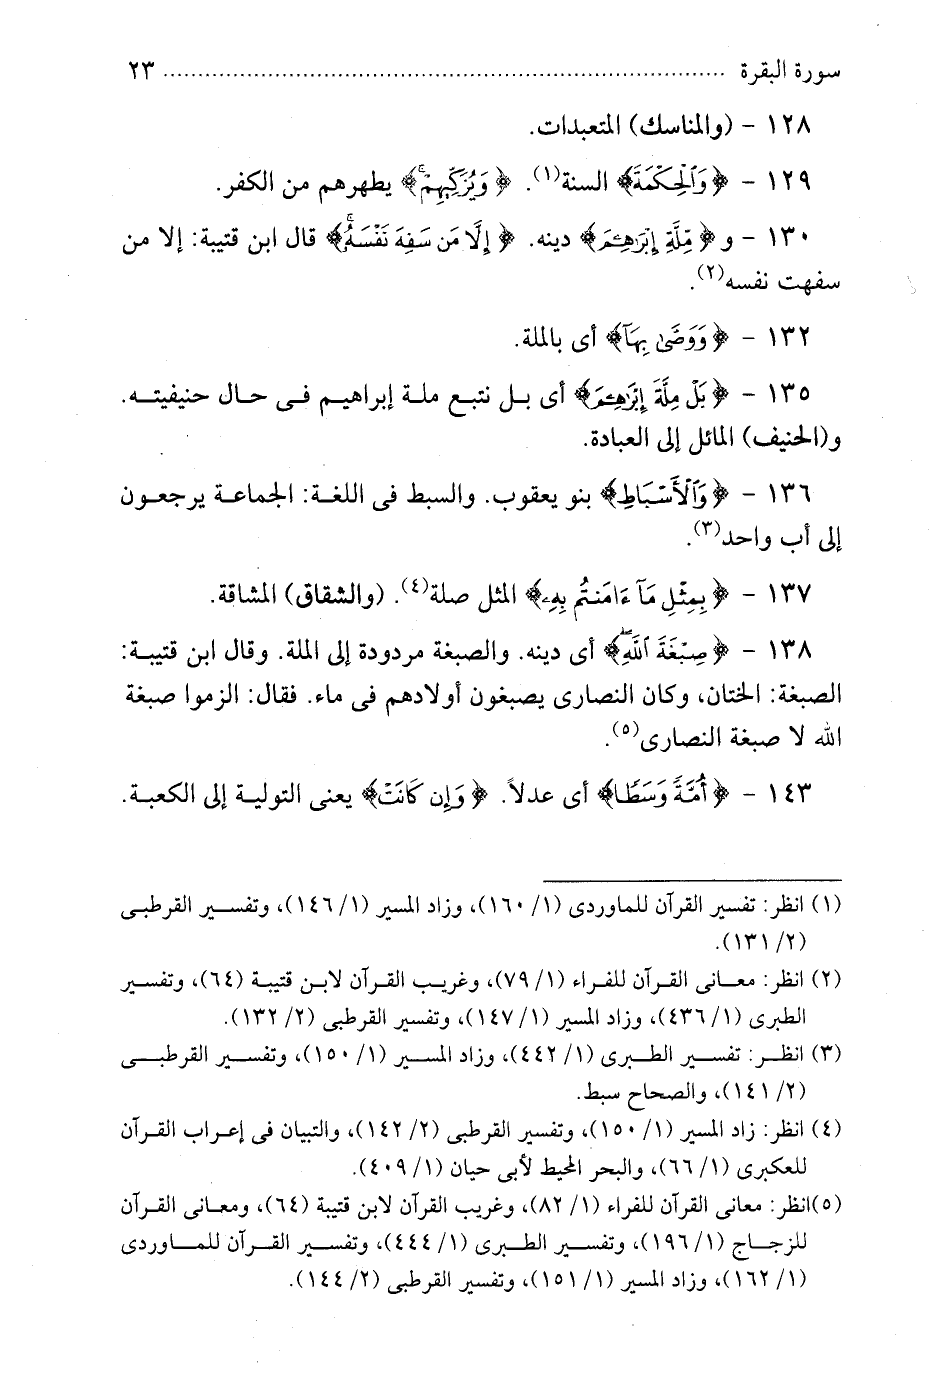 سورة البقرة ........................................................................ ٢٣
١٢٨ - (والمناسك) المتعبدات.
١٢٩ - ﴿وَٱلْحِكْمَةَ﴾ السنة(١). ﴿وَيُزَكِّيهِمْ ۚ﴾ يطهرهم من الكفر.
١٣٠ - و ﴿مِّلَّةِ إِبْرَٰهِـۧمَ﴾ دينه. ﴿إِلَّا مَن سَفِهَ نَفْسَهُۥ ۚ﴾ قال ابن قتيبة: إلا من
سفهت نفسه(٢).
١٣٢ - ﴿وَوَصَّىٰ بِهَآ﴾ أى بالملة.
١٣٥ - ﴿بَلْ مِلَّةَ إِبْرَٰهِـۧمَ﴾ أى بـل نتبع ملـة إبراهيـم فـى حـال حنيفيتـه.
و(الحنيف) المائل إلى العبادة.
١٣٦ - ﴿وَٱلْأَسْبَاطِ﴾ بنو يعقوب. والسبط فى اللغـة: الجماعـة يرجعـون
إلى أب واحد(٣).
١٣٧ - ﴿بِمِثْلِ مَآ ءَامَنتُم بِهِۦ﴾ المثل صلة(٤). (والشقاق) المشاقة.
١٣٨ - ﴿صِبْغَةَ ٱللَّهِ ۖ﴾ أى دينه. والصبغة مردودة إلى الملة. وقال ابن قتيبـة:
الصبغة: الختان، وكان النصارى يصبغون أولادهم فى ماء. فقال: الزموا صبغة
الله لا صبغة النصارى(٥).
١٤٣ - ﴿أُمَّةً وَسَطًا﴾ أى عدلاً. ﴿وَإِن كَانَتْ﴾ يعنى التوليـة إلى الكعبـة.
(١) انظر: تفسير القرآن للماوردى (١/ ١٦٠)، وزاد المسير (١/ ١٤٦)، وتفسـير القرطبـى
(٢/ ١٣١).
(٢) انظر: معـانى القـرآن للفـراء (١/ ٧٩)، وغريـب القـرآن لابـن قتيبـة (٦٤)، وتفسـير
الطبرى (١/ ٤٣٦)، وزاد المسير (١/ ١٤٧)، وتفسير القرطبى (٢/ ١٣٢).
(٣) انظـر: تفسـير الطـبرى (١/ ٤٤٢)، وزاد المسـير (١/ ١٥٠)، وتفسـير القرطبـى
(٢/ ١٤١)، والصحاح سبط.
(٤) انظر: زاد المسير (١/ ١٥٠)، وتفسير القرطبى (٢/ ١٤٢)، والتبيان فى إعراب القـرآن
للعكبرى (١/ ٦٦)، والبحر المحيط لأبى حيان (١/ ٤٠٩).
(٥)انظر: معانى القرآن للفراء (١/ ٨٢)، وغريب القرآن لابن قتيبة (٦٤)، ومعـانى القـرآن
للزجـاج (١/ ١٩٦)، وتفسـير الطـبرى (١/ ٤٤٤)، وتفسـير القـرآن للمـاوردى
(١/ ١٦٢)، وزاد المسير (١/ ١٥١)، وتفسير القرطبى (٢/ ١٤٤).